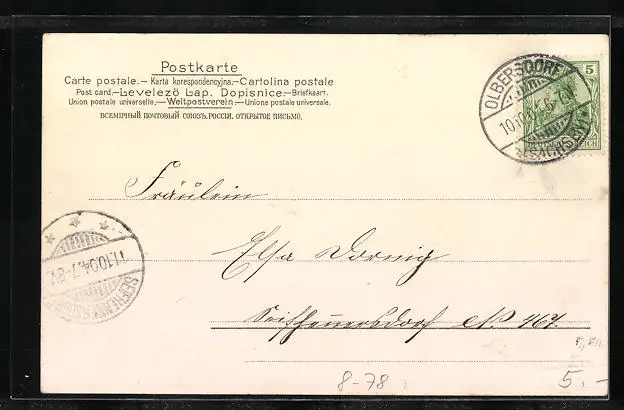 Postkarte
Carte postale.— Karta korespondencyjna.—Cartolina postale
Post card.—Levelező Lap. Dopisnice.—Briefkaart.
Union postale universelle.—Weltpostverein—Unione postale universale.
ВСЕМІРНЫЙ ПОЧТОВЫЙ СОЮЗЪ. РОССІЯ. ОТКРЫТОЕ ПИСЬМО.
OLBERSDORF
10.10.04
(SACHSEN)
5
REICH
Fräulein
11.10.04.7-8V.
SEIFHENNERSDORF
Elsa Dornig
Seifhennersdorf № 467.
8-78
5.-